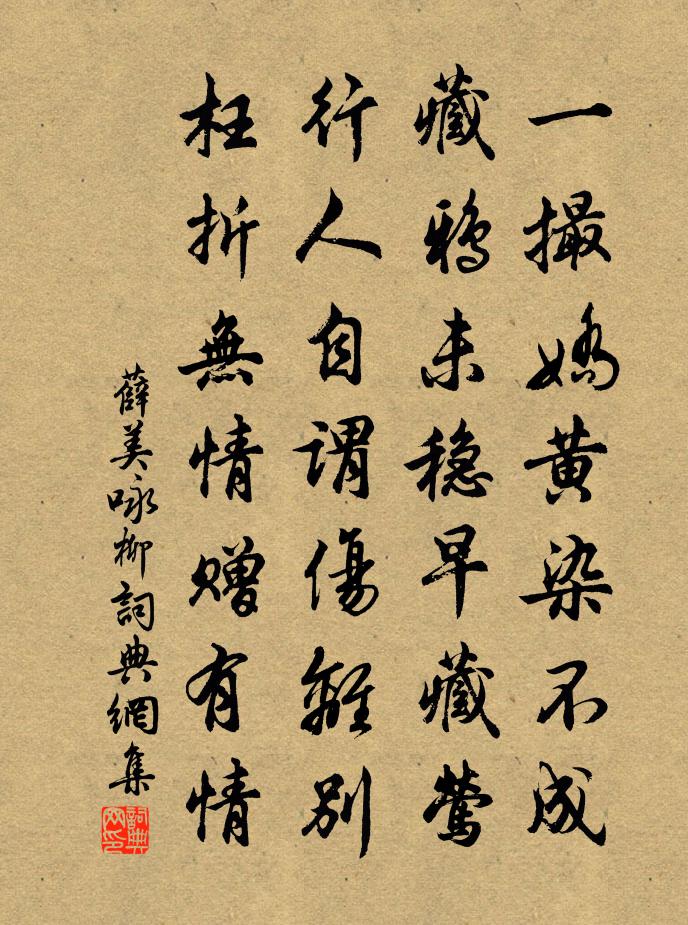 一撮嬌黄染不成
藏鴉未穏早藏鶯
行人自謂傷離別
枉折無情贈有情
薛美咏柳詞典網集
詞典网印